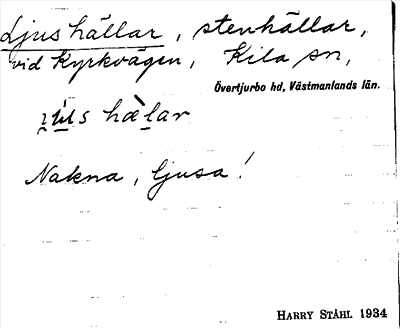 Ljushällar, stenhällar,
vid Kyrkvägen, Kila sn,
Övertjurbo hd, Västmanlands län.
hæ̀lar
Nakna, ljusa!
HARRY STÅHL 1934